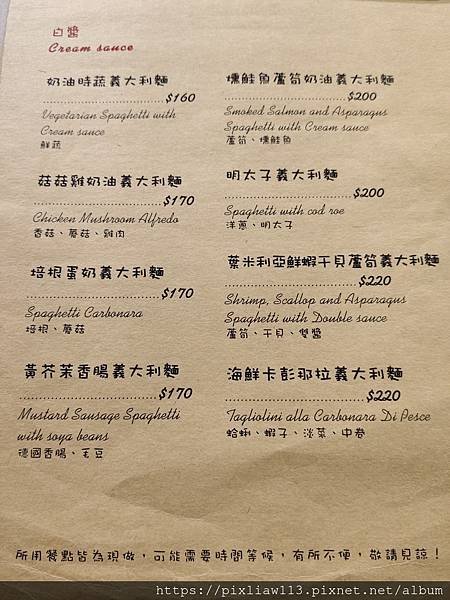 白醬
Cream sauce
奶油時蔬義大利麵
$160
Vegetarian Spaghetti with
Cream sauce
鮮蔬
菇菇雞奶油義大利麵
$170
Chicken Mushroom Alfredo
香菇、蘑菇、雞肉
培根蛋奶義大利麵
$170
Spaghetti Carbonara
培根、蘑菇
黃芥茉香腸義大利麵
$170
Mustard Sausage Spaghetti
with soya beans
德國香腸、毛豆
燻鮭魚蘆筍奶油義大利麵
$200
Smoked Salmon and Asparagus
Spaghetti with Cream sauce
蘆筍、燻鮭魚
明太子義大利麵
$200
Spaghetti with cod roe
洋蔥、明太子
葉米利亞鮮蝦干貝蘆筍義大利麵
$220
Shrimp, Scallop and Asparagus
Spaghetti with Double sauce
蘆筍、干貝、雙醬
海鮮卡彭那拉義大利麵
$220
Tagliolini alla Carbonara Di Pesce
蛤蜊、蝦子、淡菜、中卷
所用餐點皆為現做，可能需要時間等候，有所不便，敬請見諒！
https://pixliaw113.pixnet.net/album